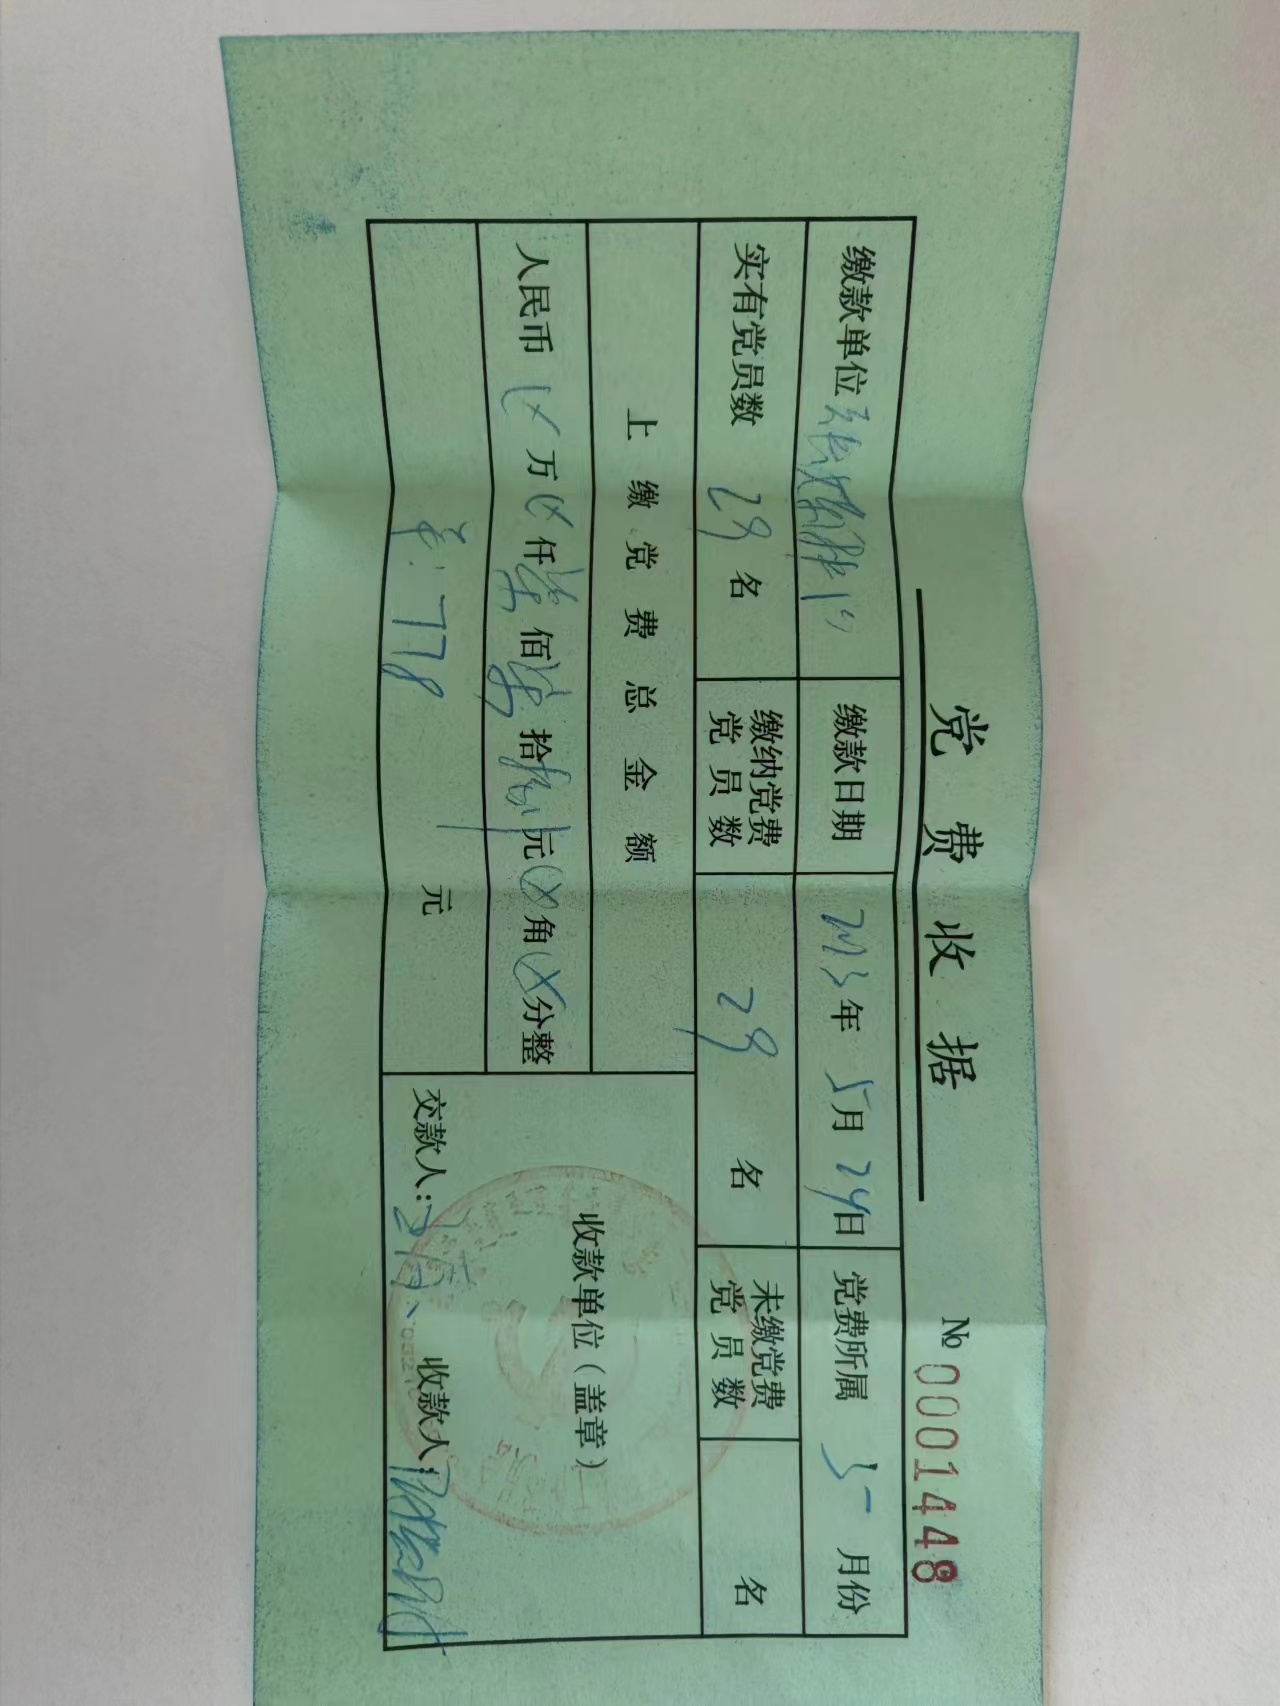 党费收据
№ 0001448
缴款单位 缴款日期 2023年 5月 29日 党费所属 5 月份
实有党员数 29 名 缴纳党费党员数 29 名 未缴党费党员数 名
上缴党费总金额
收款单位（盖章）
人民币 ⊗万⊗仟柒佰柒拾捌元⊗角⊗分整
¥：778 元
交款人： 收款人：